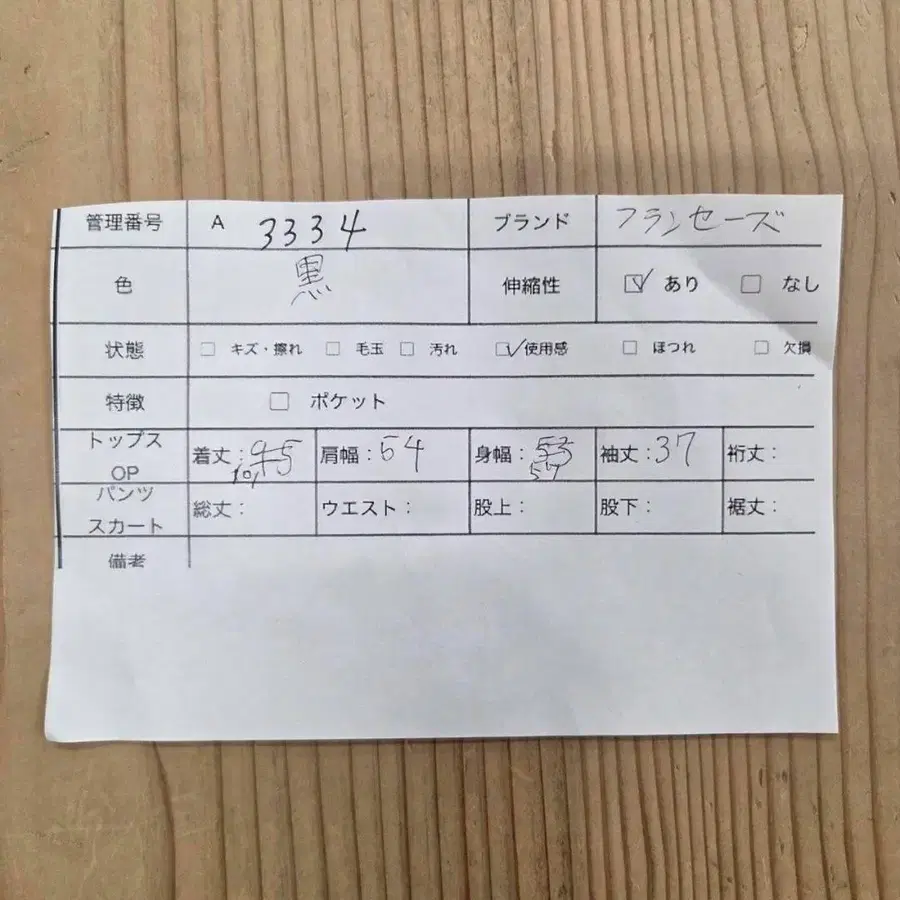 管理番号 A 3334 ブランド フランセーズ
色 黒 伸縮性 ☑ あり ☐ なし
状態 ☐ キズ・擦れ ☐ 毛玉 ☐ 汚れ ☑ 使用感 ☐ ほつれ ☐ 欠損
特徴 ☐ ポケット
トップス OP 着丈: 95 101 肩幅: 54 身幅: 53 57 袖丈: 37 裄丈:
パンツ スカート 総丈: ウエスト: 股上: 股下: 裾丈:
備考